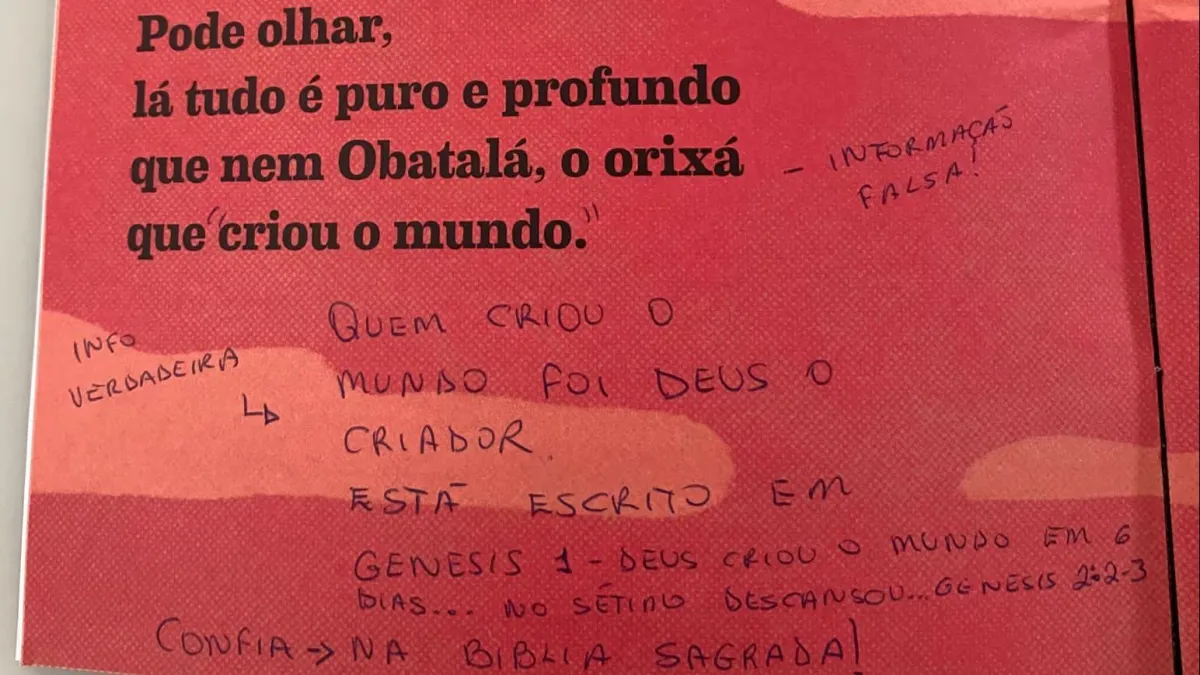 Pode olhar,
lá tudo é puro e profundo
que nem Obatalá, o orixá
que "criou o mundo."
- INFORMAÇÃO
FALSA!
INFO
VERDADEIRA
↳
QUEM CRIOU O
MUNDO FOI DEUS O
CRIADOR.
ESTÁ ESCRITO EM
GENESIS 1 - DEUS CRIOU O MUNDO EM 6
DIAS... NO SÉTIMO DESCANSOU... GENESIS 2:2-3
CONFIA → NA BIBLIA SAGRADA!